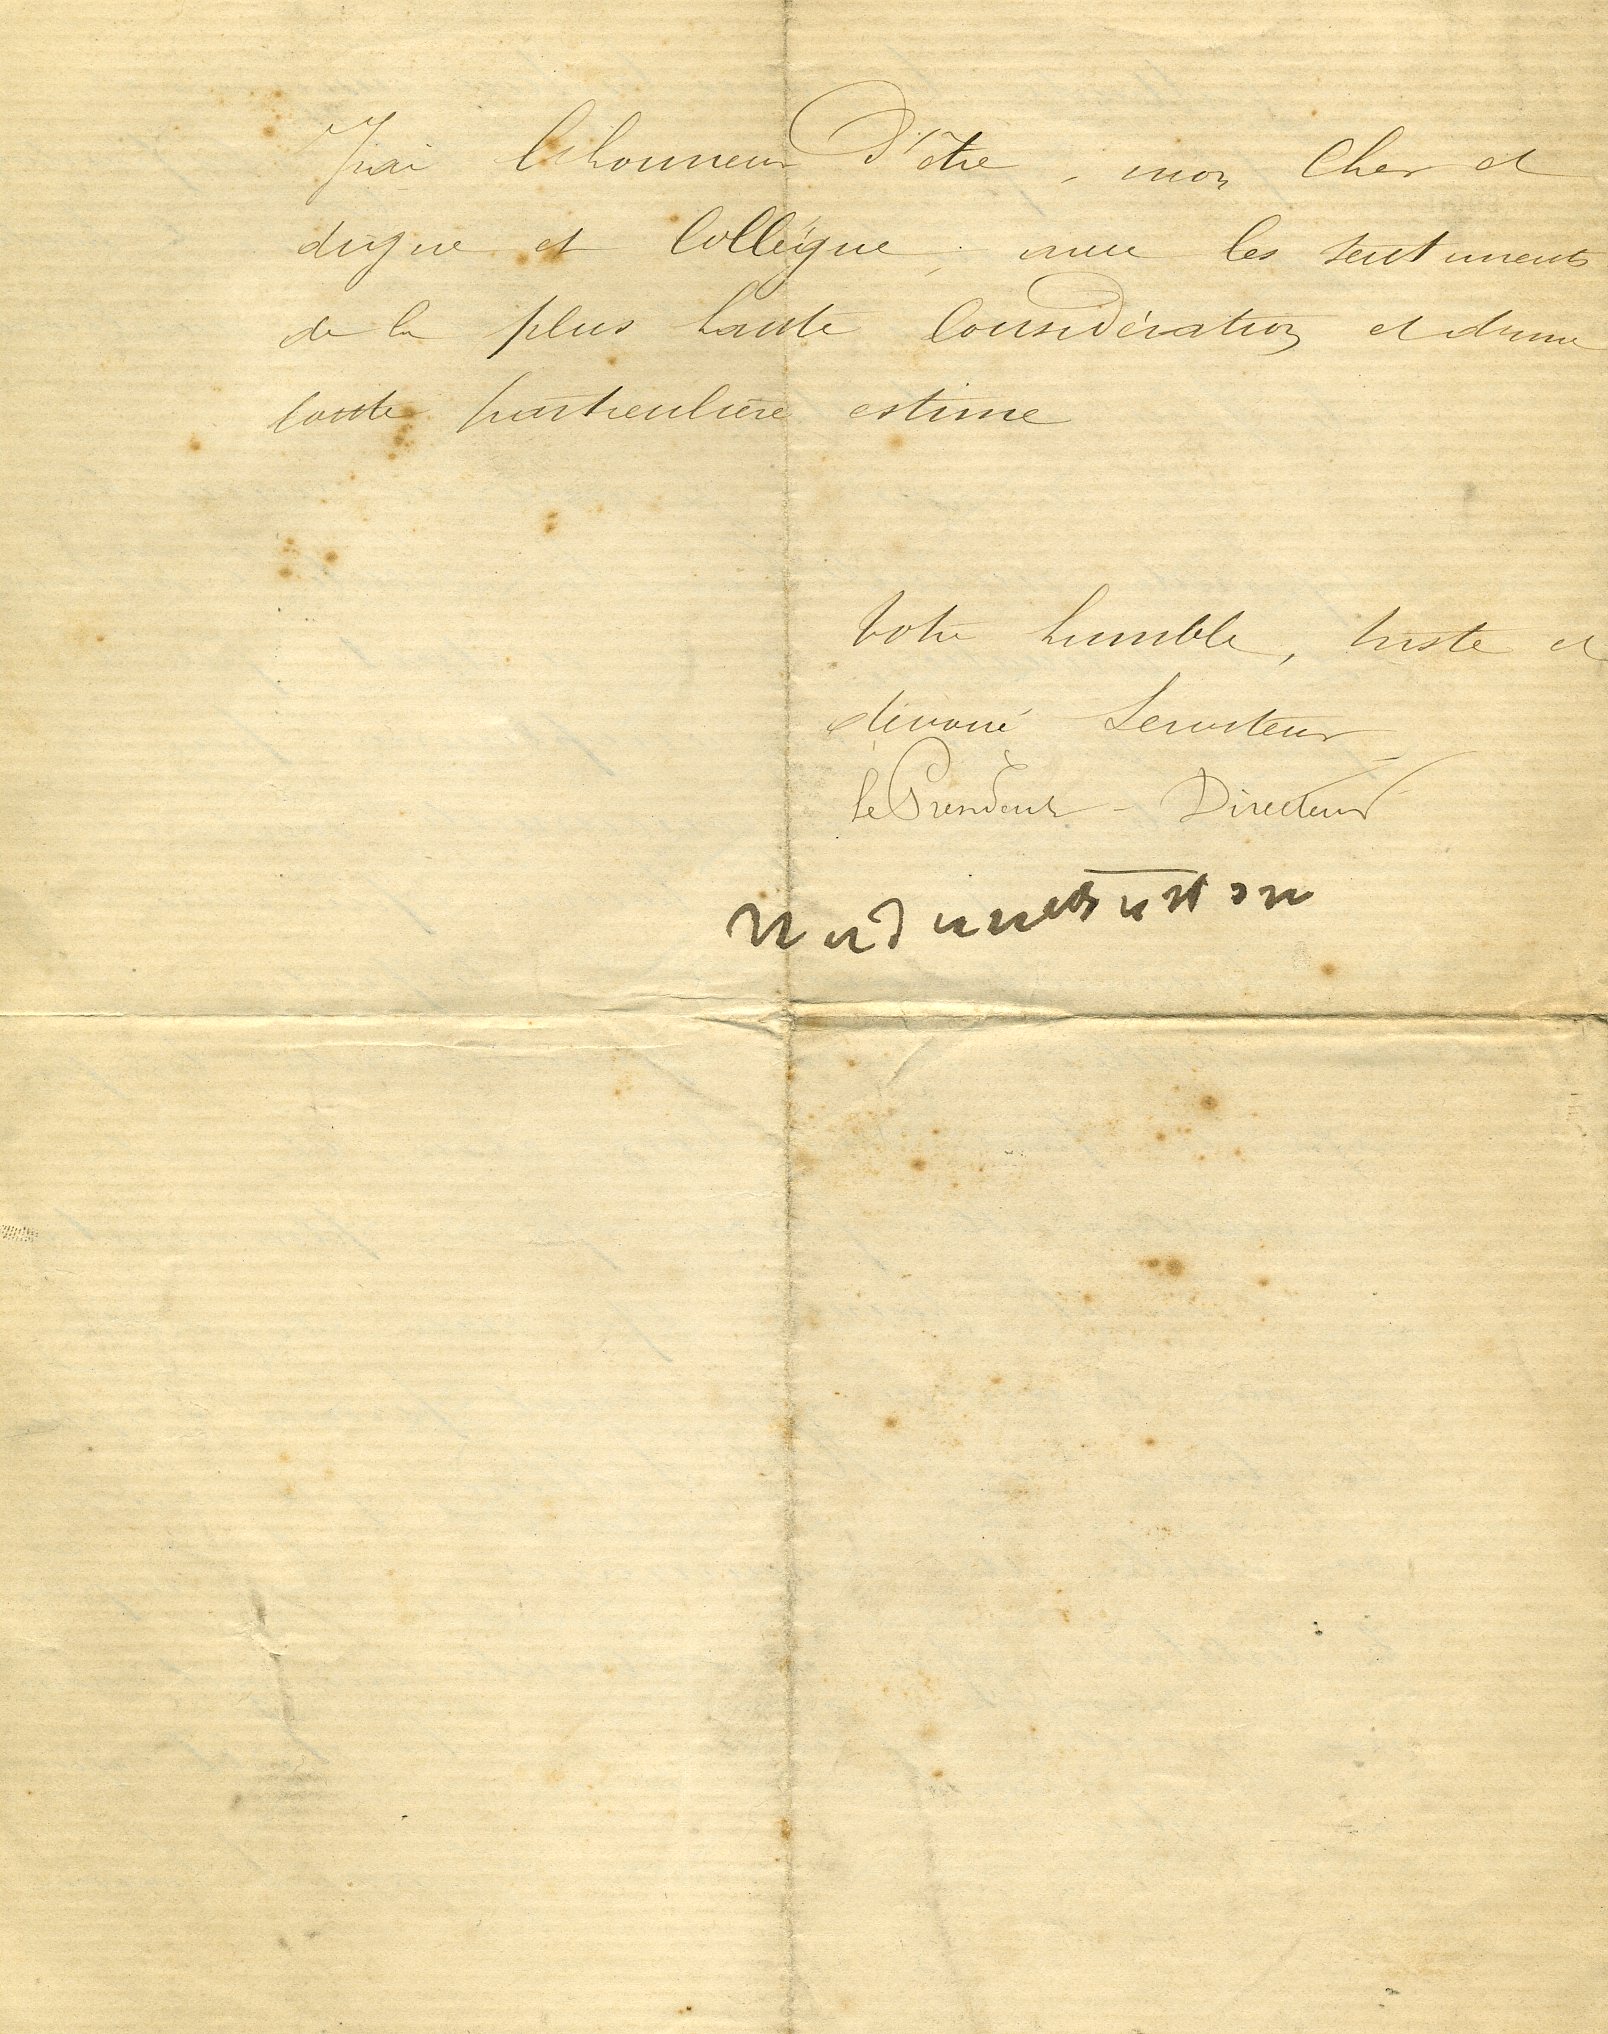 J'ai l'honneur d'être, mon Cher et
digne et Collègue, avec les sentiments
de la plus haute Considération et d'une
toute particulière estime
Votre humble, triste et
dévoué Serviteur
le Président - Directeur